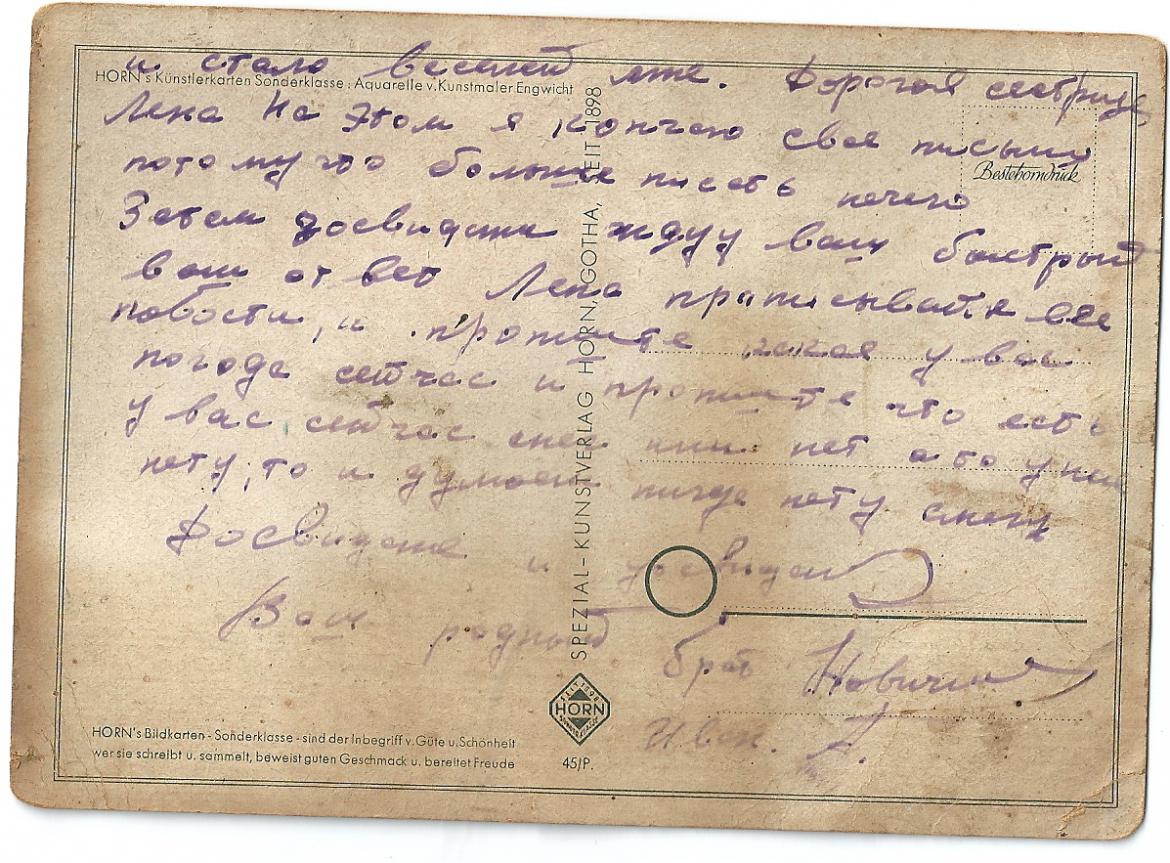 и стало веселей мне. Дорогая сестрица
HORN's Künstlerkarten Sonderklasse: Aquarelle v. Kunstmaler Engwicht
Лена На этом я кончаю свое письмо
потому что больше писать нечего
Bestehorndruck
Затем досвидания жду ваш быстрый
ваш ответ Лена прописывайте все
новости, и пропишите какая у вас
погода сейчас и пропишите что есть
у вас сейчас снег или нет а то у нас
нету, то и думаем нигде нету снегу
Досвидания и досвидан
Ваш родный брат Новичков
Иван. А.
SPEZIAL-KUNSTVERLAG HORN, GOTHA, SEIT 1898
SEIT 1898
HORN
HORN's Bildkarten - Sonderklasse - sind der Inbegriff v. Güte u. Schönheit
wer sie schreibt u. sammelt, beweist guten Geschmack u. bereitet Freude
45/P.